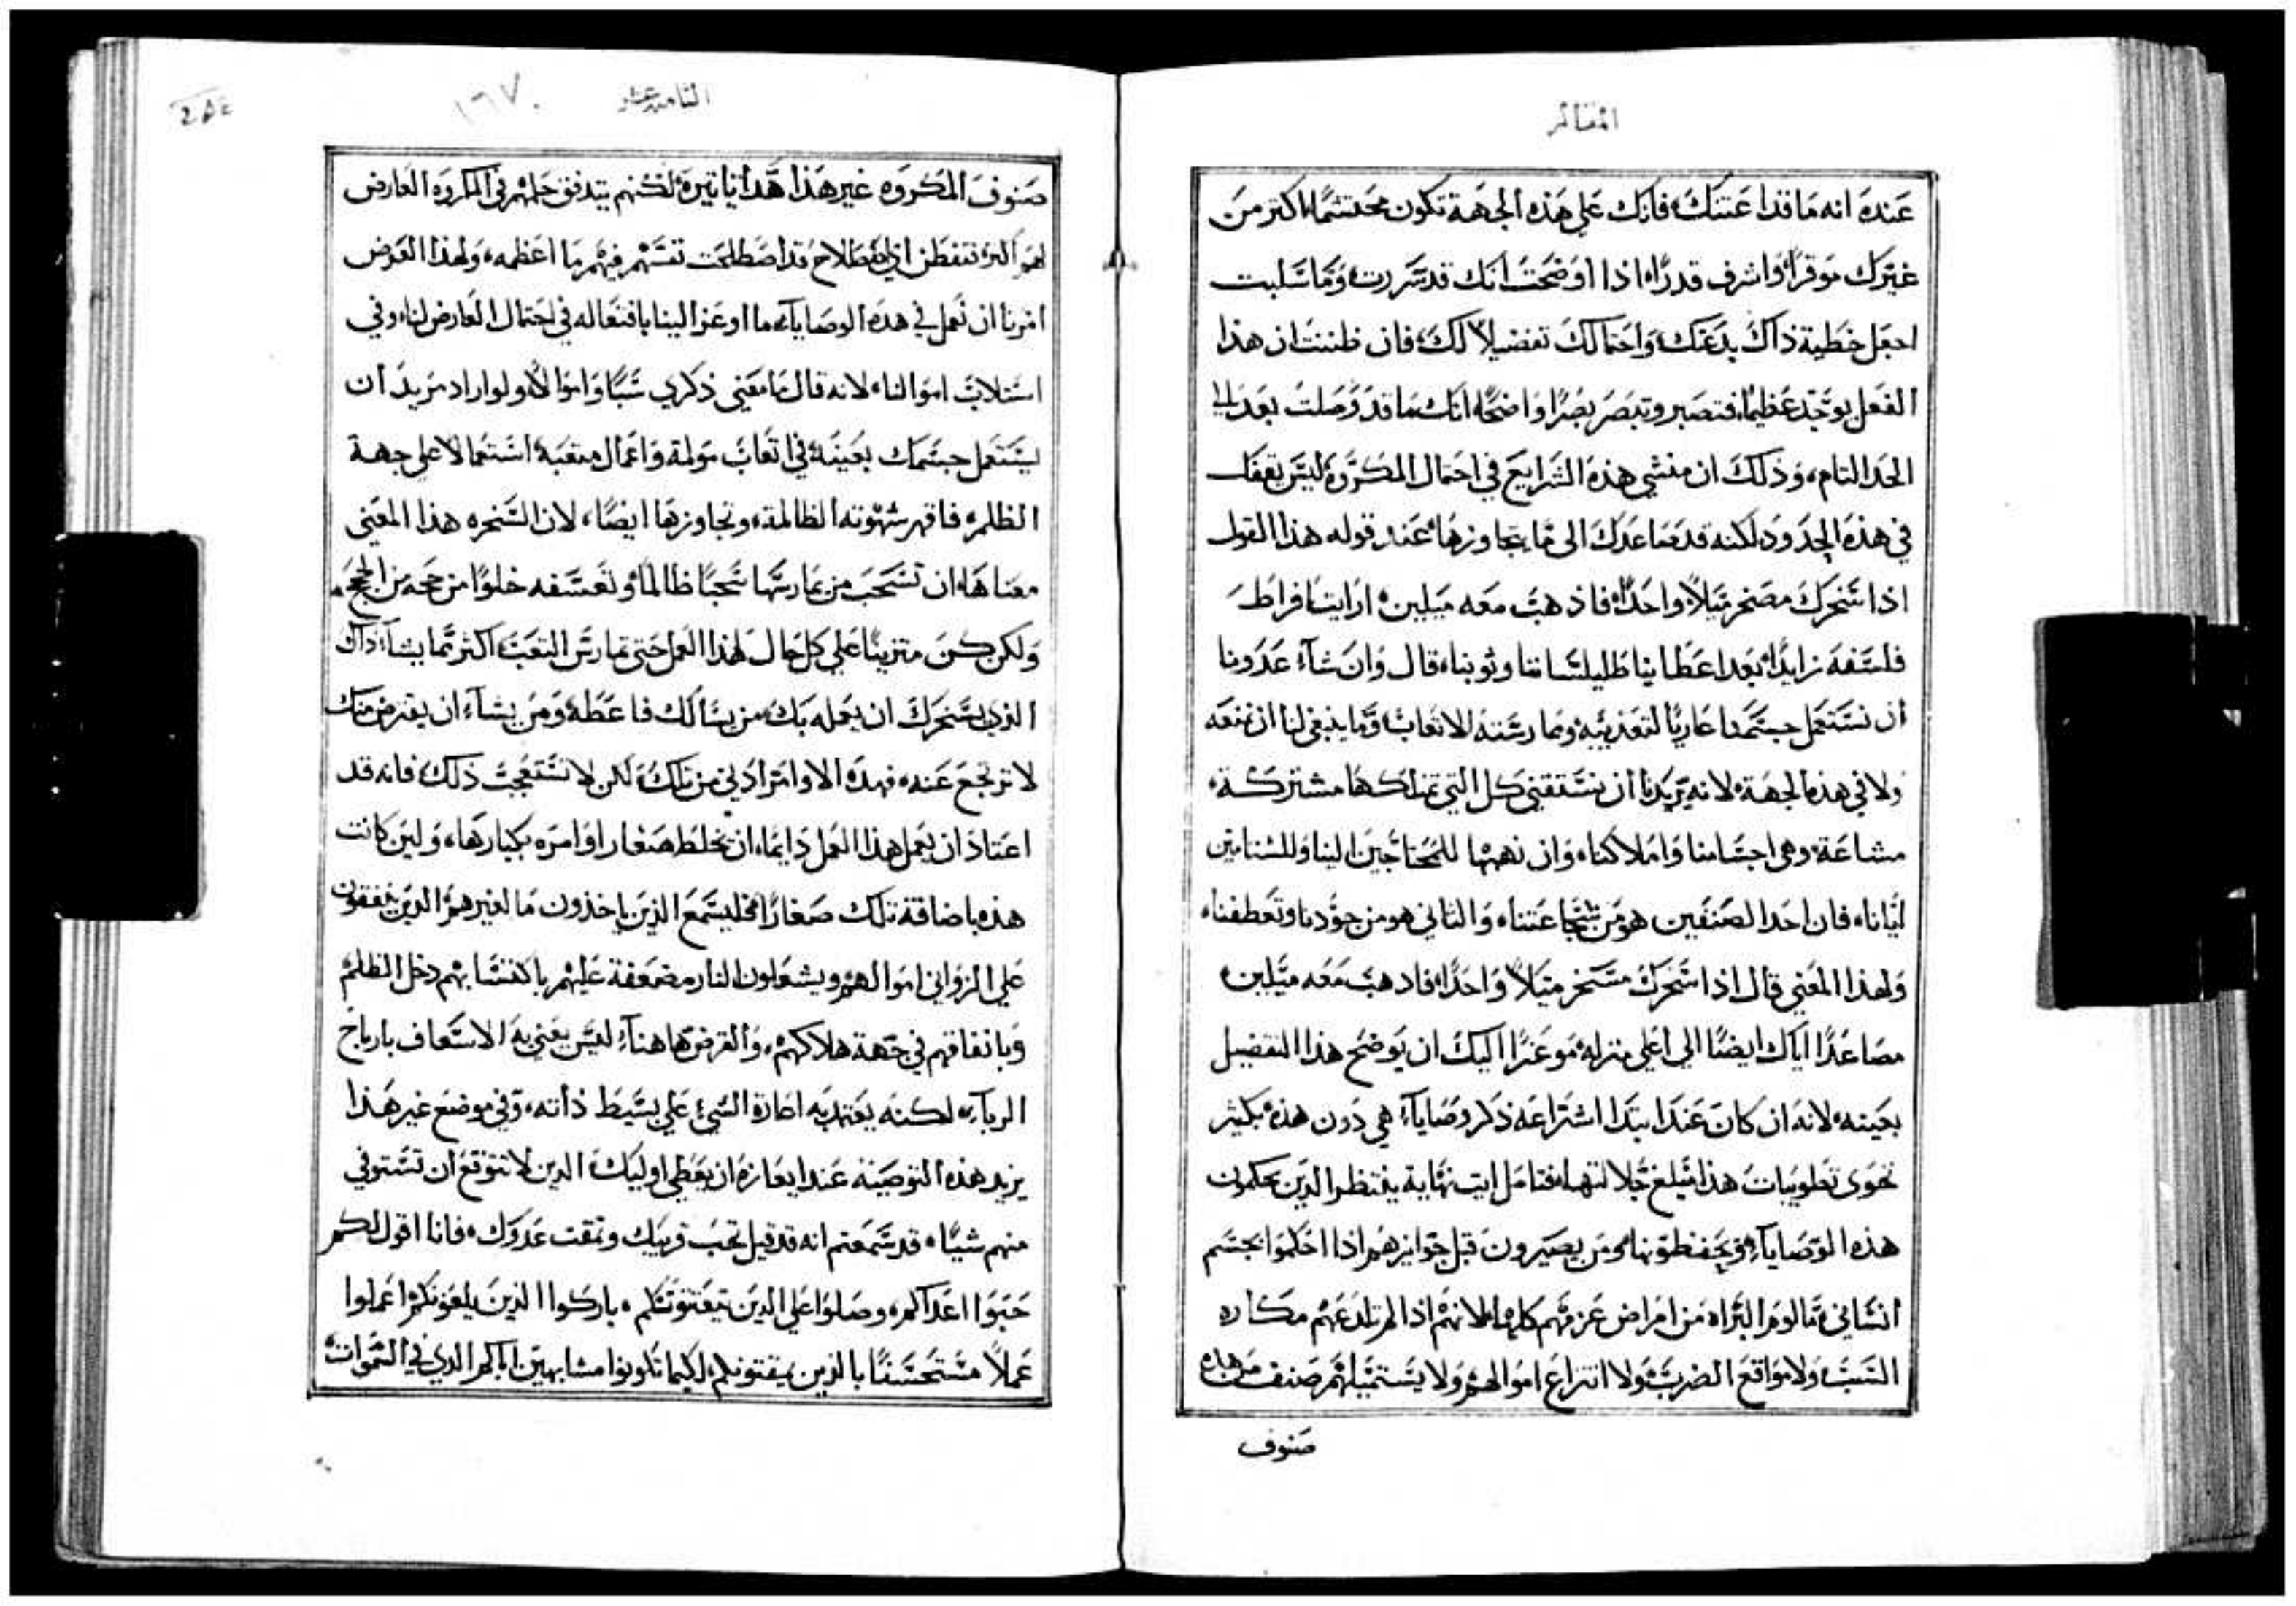 المقاله
عنده انه ما قد اعتنك، فانك على هذه الجهة تكون محتشمًا اكثر من
غيرك موقرًا، واشرف قدرًا، اذا اوضحت انك قد سررت، وما سلبت
اجعل خطية ذاك بدعتك، واحتمالك تفضيلاً لك، فان ظننت ان هذا
الفعل يوجد عظيمًا، فتصبر وتبصر بصرًا واضحًا، انك ما قد وصلت بعد الى
الحد التام، وذلك ان منشي هذه الشرايع في احتمال المكروه ليس يقف
في هذه الحدود، لكنه قد صاعدك الى ما يتجاوزها، عند قوله هذا القول
اذا سخرك مسخر ميلاً واحدًا، فاذهب معه ميلين، ارايت افراط
فلسفه زايدًا، بعد اعطاينا طليلساننا وثوبنا، قال وان شآء عدونا
ان نستعمل جسمنا عاريًا لتعذيبه وممارسته الاتعاب، وما ينبغي لنا ان نمنعه
ولا في هذه الجهة، لانه يريدنا ان نستقني كل التي نمتلكها مشتركة،
مشاعة، وهي اجسامنا واملاكنا، وان نهبها للمحتاجين الينا وللشتامين
ايانا، فان احد الصنفين هو من شجاعتنا، والثاني هو من جودنا وتعطفنا،
ولهذا المعنى قال اذا سخرك مسخر ميلاً واحدًا، فاذهب معه ميلين،
مصاعدًا اياك ايضًا الى اعلى منزله، موعزًا اليك ان يوضح هذا التفضيل
بعينه، لانه ان كان عند ابتدا اشتراعه ذكر وصايآء، هي دون هذه بكثير
تحوى تطويبات هذا مبلغ جلالتها، فتامل ايت نهاية ينتظر الذين يحكمون
هذه الوصايآء، ويحفظونها، ومن يصيرون قبل جوايزهم اذا احكموا بجسم
انساني مالوم البراه من امراض عزمهم كلها، لانهم اذا لم تلدعهم مكاره
السب، ولا مواقع الضرب، ولا انتزاع اموالهم، ولا يستميلهم صنف من هذه
صنوف
الثامنه عشر
١٦٧٠
صنوف المكروه غير هذا هذا ثاثيره، لكنهم يتدفق حلمهم في المكروه العارض
لهم اكثر، فتفطن اي اصطلاح قد اصطلحت نفسهم فيهم ما اعظمه، ولهذا الغرض
امرنا ان نعمل في هذه الوصايآء، ما اوعز الينا بافتعاله في احتمال العارض لنا، وفي
استلاب اموالنا، لانه قال ما معنى ذكري سبًا واموالاً، ولو اراد مريد ان
يستعمل جسمك بعينه، في اتعاب مولمة، واعمال متعبة، استعمالاً على جهة
الظلم، فاقهر شهوته الظالمة، وتجاوزها ايضًا، لان السخره هذا المعنى
معناها، ان تسحب من يمارسها سحبًا ظالمًا، وتعسفه خلوًا من حجه من الحجج،
ولكن كن متزينًا على كل حال لهذا العمل، حتى تمارس التعب، اكثر مما يشاء ذاك
الذي يسخرك ان يعمله بك، من يسالك فاعطه، ومن يشاء ان يقترض منك
لا ترجع عنه، فهذه الاوامر ادني من تلك، لكن لا تستعجب ذلك، فانه قد
اعتاد ان يعمل هذا العمل دايمًا، ان يخلط صغار اوامره بكبارها، ولين كانت
هذه باضافة تلك صغارًا، فليسمع الذين ياخذون ما لغيرهم، الذين ينفقون
على الزواني اموالهم، ويشعلون النار مضعفة عليهم، باكتسابهم دخل الظلم
وبانفاقهم في جهة هلاكهم، والقرض هاهنآء ليس يعني به الاسعاف بارباح
الربآء، لكنه يعتد به اعارة الشي على بسيط ذاته، وفي موضع غير هذا
يزيد هذه التوصينه عند ايعازه، ان يعطي اوليك الذين لا تتوقع ان تستوفي
منهم شيئًا، قد سمعتم انه قد قيل تحب قريبك وتمقت عدوك، فانا اقول لكم
حبوا اعداكم، وصلوا على الذين يعنتونكم، باركوا الذين يلعنونكم، اعملوا
عملاً مستحسنًا بالذين يمقتونكم، لكيما تكونوا مشابهين اباكم الذي في السموات،